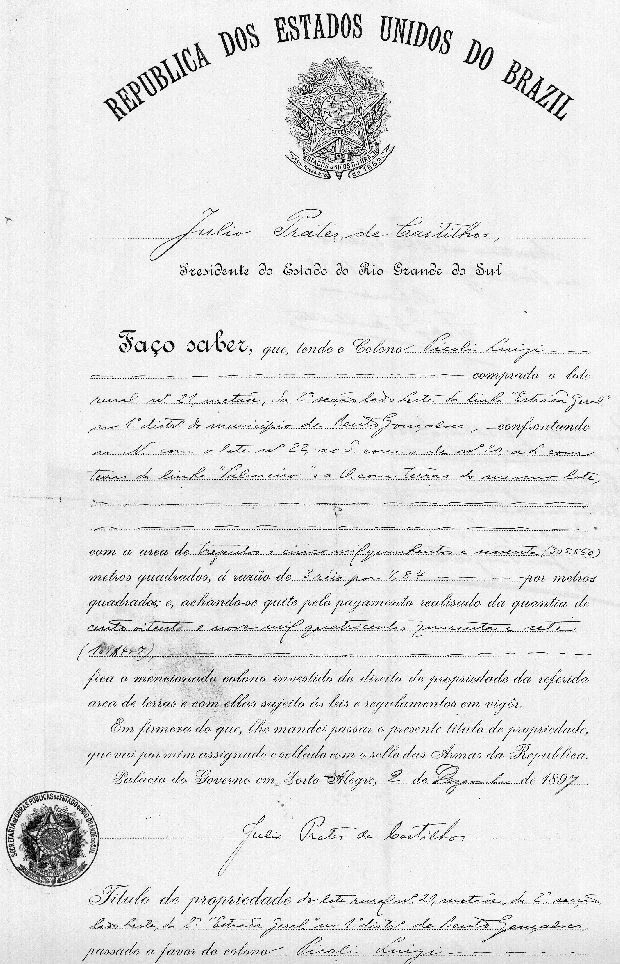 REPUBLICA DOS ESTADOS UNIDOS DO BRAZIL
Julio Prates de Castilhos,
Presidente do Estado do Rio Grande do Sul
Faço saber, que, tendo o Colono Luigi
comprado o lote
rural nº 21, metade, da secção lado Leste da linha "Estrada Geral"
no 1º distº do municipio de Bento Gonçalves, confrontando
ao N. com o lote nº 22, ao S. com o de nº 20, a L. com
terras da linha "Palmeiro" e a O. com terras do mesmo lote,
com a area de trezentos e cinco mil quinhentos e noventa
metros quadrados, á razão de réis por 4,84 por metros
quadrados; e, achando-se quite pelo pagamento realisado da quantia de
cento oitenta e nove mil quatrocentos e sete
fica o mencionado colono investido do direito de propriedade da referida
area de terras e com elles sujeito ás leis e regulamentos em vigôr.
Em firmeza do que, lhe mandei passar o presente titulo de propriedade,
que vai por mim assignado e sellado com o sello das Armas da Republica.
Palacio do Governo em Porto Alegre, 2 de Dezembro de 1897
Julio Prates de Castilhos
Titulo de propriedade do lote rural nº 21, metade, da secção
lado Leste, da "Estrada Geral" no 1º distº de Bento Gonçalves
passado a favor do colono Luigi